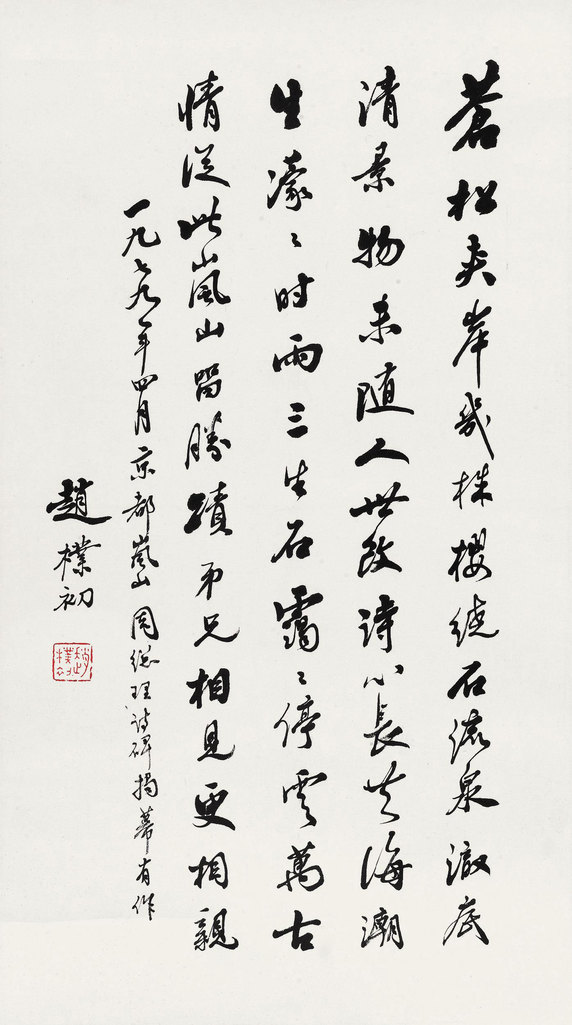 蒼松夾岸幾株櫻繞石流泉澈底
清景物未随人世改詩心長共海潮
生濛〻時雨三生石靄〻停雲萬古
情從此嵐山留勝蹟弟兄相見更相親
一九七九年四月京都嵐山周總理詩碑揭幕有作
趙樸初
趙樸初